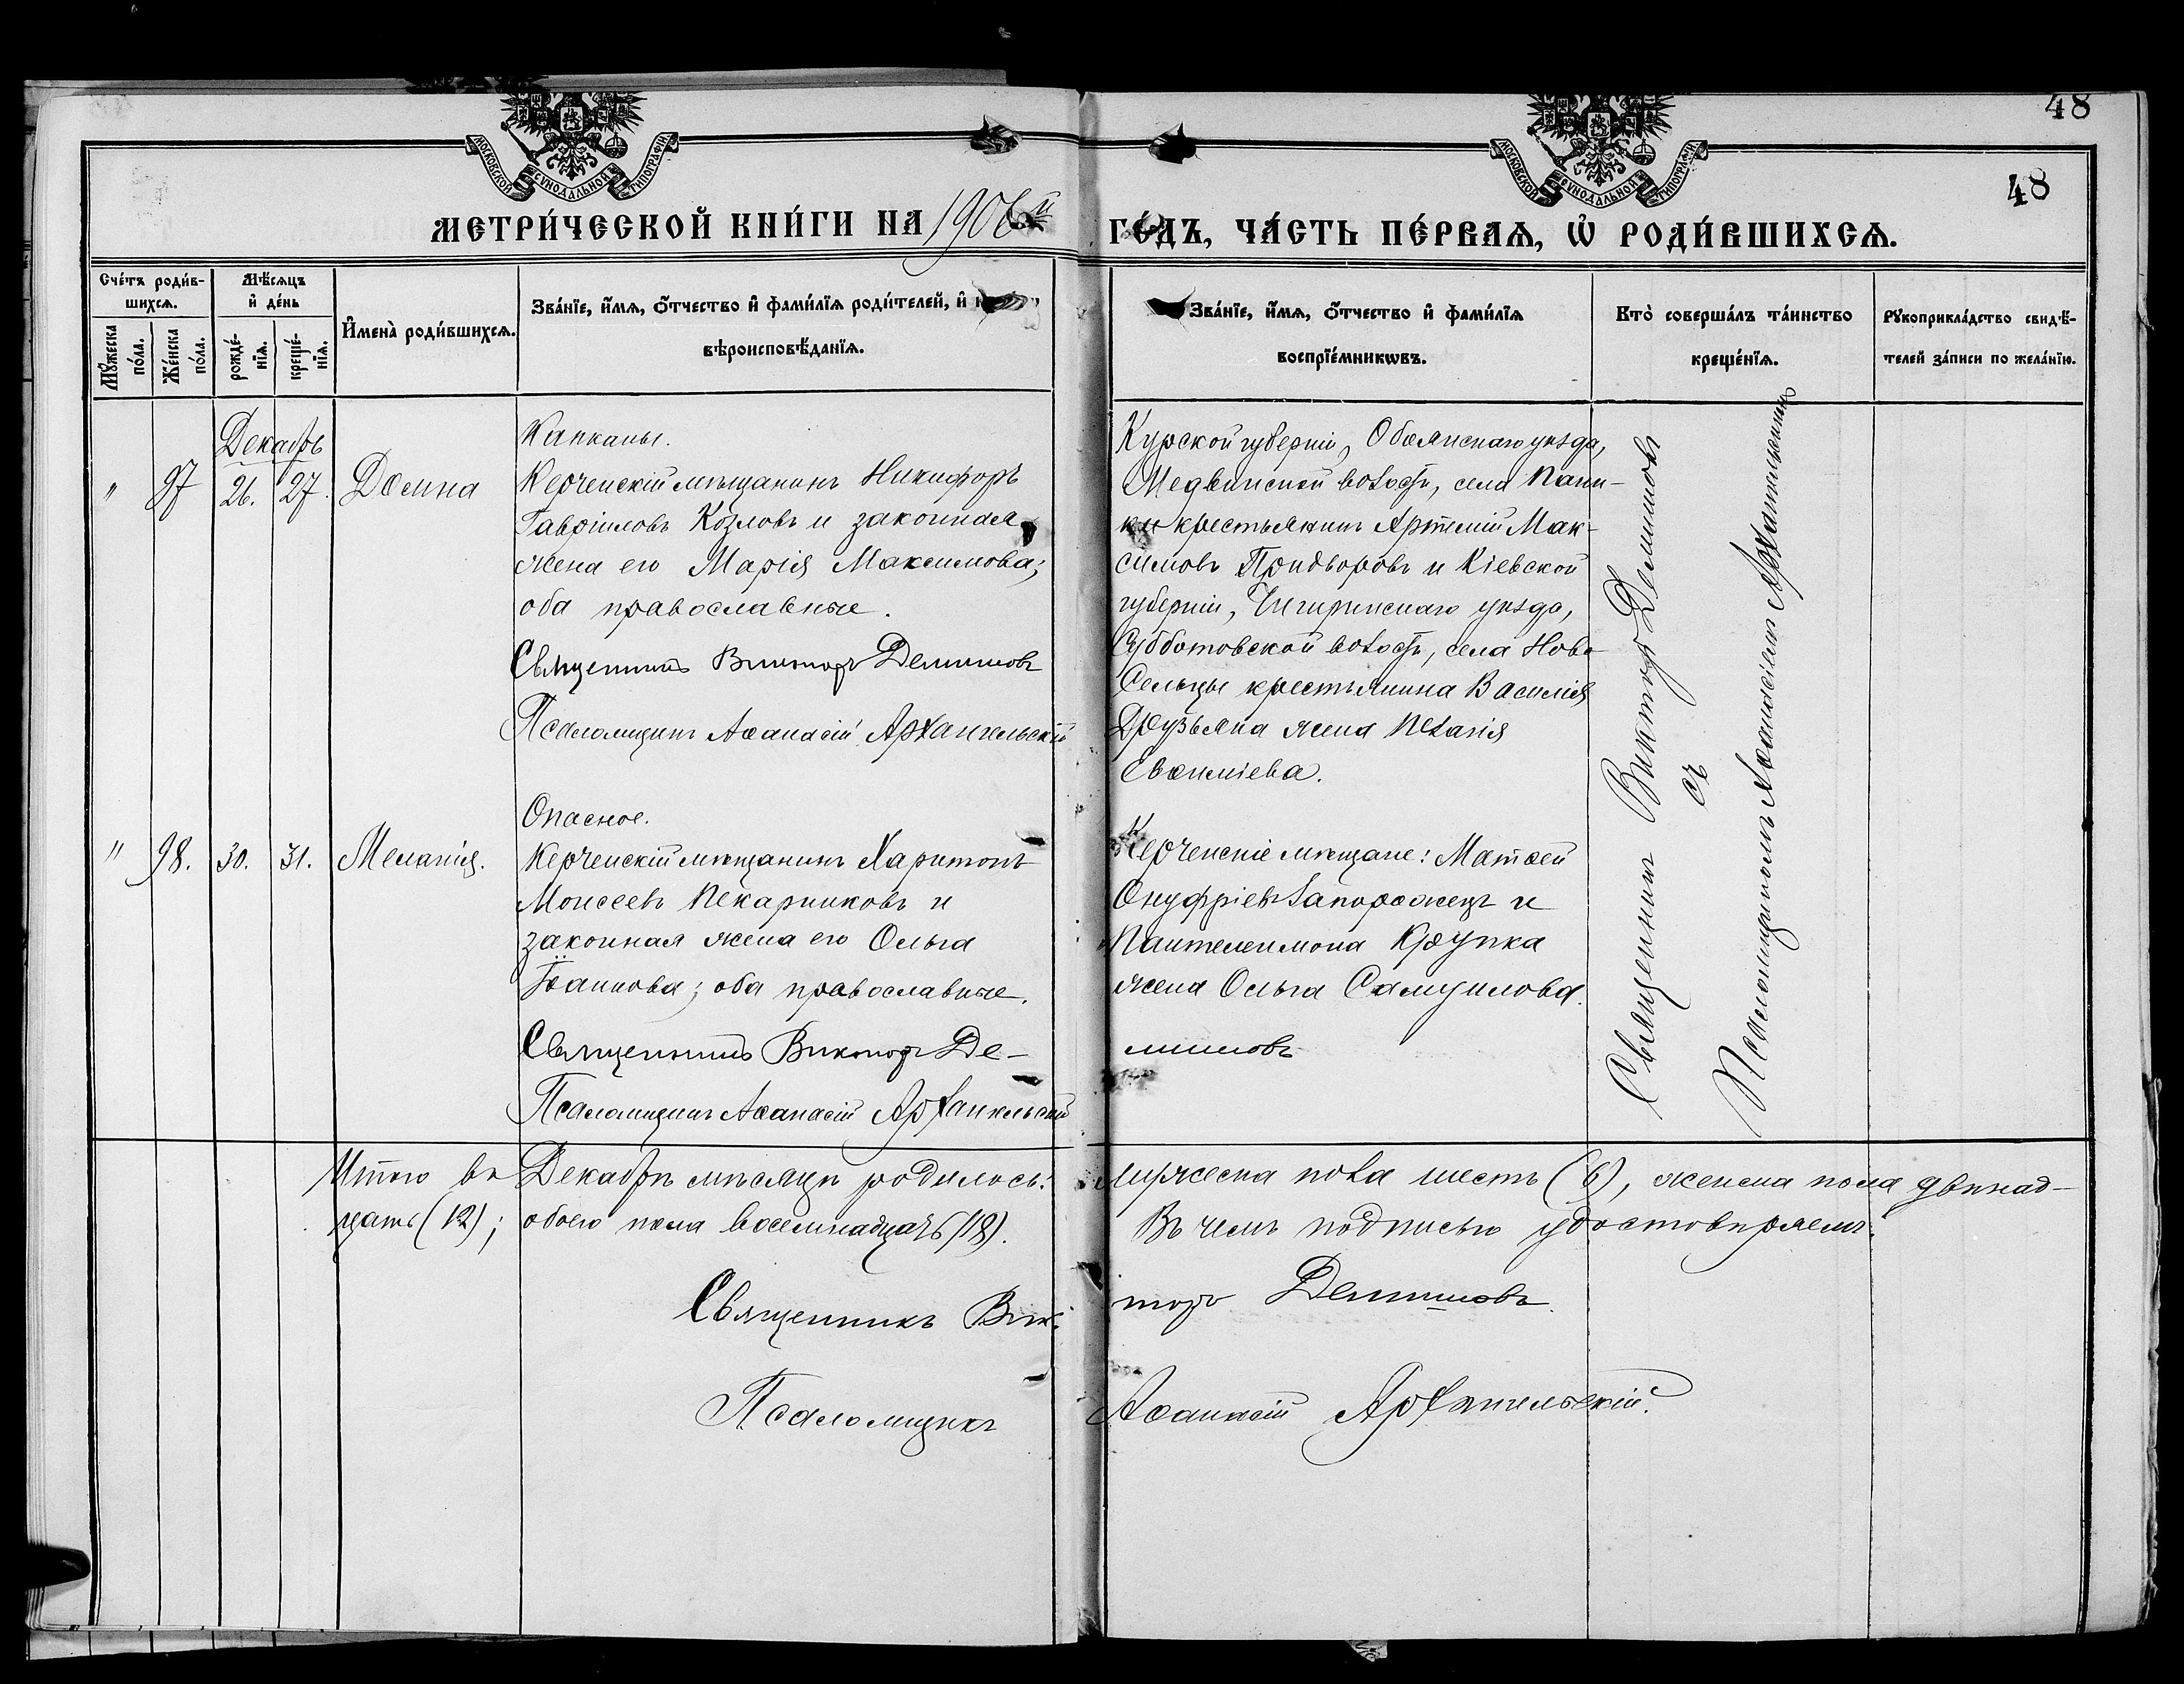 48
48
МОСКОВСКОЙ СѴНОДАЛЬНОЙ ТИПОГРАФІИ
МОСКОВСКОЙ СѴНОДАЛЬНОЙ ТИПОГРАФІИ
МЕТРИ́ЧЕСКОЙ КНИ́ГИ НА 1906й ГО́ДЪ, ЧА́СТЬ ПЕ́РВАѦ, Ѡ҆ РОДИ́ВШИХСѦ.
Сче́тъ роди́в-
шихсѧ.
Мꙋ́жеска по́ла.
Же́нска по́ла.
Мѣ́сѧцъ
и҆ де́нь
рожде́-
нїѧ.
креще́-
нїѧ.
И҆мена̀ роди́вшихсѧ.
Зва́нїе, и҆́мѧ, ѻ҆́тчество и҆ фами́лїѧ роди́телей, и҆
вѣроисповѣ́данїѧ.
Зва́нїе, и҆́мѧ, ѻ҆́тчество и҆ фами́лїѧ
воспрїе́мникѡвъ.
Кто̀ соверша́лъ та́инство
креще́нїѧ.
Рꙋкоприкла́дство свидѣ́-
телей за́писи по жела́нїю.
Декабрь
" 97 26. 27. Домна
Капканы.
Керченскій мѣщанинъ Никифоръ
Гавріиловъ Козловъ и законная
жена его Марія Максимова;
оба православные.
Священникъ Викторъ Демишовъ
Псаломщикъ Аѳанасій Архангельскій
Курской губерніи, Обоянскаго уѣзда,
Медвинской волости, села Пани-
ки крестьянинъ Артемій Мак-
симовъ Придворовъ и Кіевской
губерніи, Чигиринскаго уѣзда,
Субботовской волости, села Ново-
Сельцы крестьянина Василія
Друзьяка жена Пелагія
Евѳиміева.
" 98. 30. 31. Меланія.
Опасное.
Керченскій мѣщанинъ Харитонъ
Моисеевъ Пекарниковъ и
законная жена его Ольга
Іоаннова; оба православные.
Священникъ Викторъ Де-
мишовъ
Псаломщикъ Аѳанасій Архангельскій
Керченскіе мѣщане: Матѳей
Онуфріевъ Запорожецъ и
Пантелеимона Крупка
жена Ольга Самуилова.
Священникъ Викторъ Демишовъ
съ
Псаломщикомъ Аѳанасіемъ Архангельскимъ
Итого въ Декабрѣ мѣсяцѣ родилось: мужеска пола шесть (6), женска пола двѣнад-
цать (12); обоего пола восемнадцать (18). Въ чемъ подписью удостовѣряемъ:
Священникъ Викторъ Демишовъ.
Псаломщикъ Аѳанасій Архангельскій.